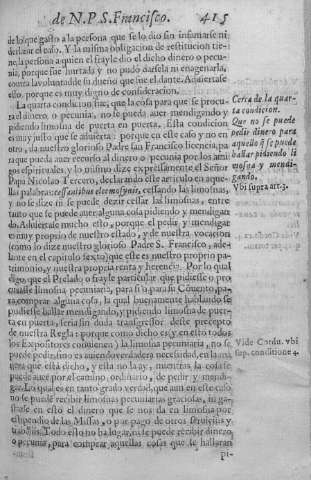 de N. P. S. Francisco. 415
de lo que gasto a la persona que se lo dio sin infamarse ni
deslizir el caso. Y la misma obligacion de restitucion tie-
ne, la persona a quien el frayle dio el dicho dinero o pecu-
nia, porque fue hurtada y no pudo darsela ni enagenarla,
contra la voluntad de su dueño que fue el dante. Aduiertase
esto, porque es muy digno de consideracion.
La quarta condicion fue, que la cosa para que se procu-
ra dinero, o pecunia, no se pueda auer mendigando y
pidiendo limosna de puerta en puerta. Esta condicion
es muy justo que se aduierta: porque en este caso y no en
otro, da nuestro glorioso Padre san Francisco licencia, pa
ra que pueda auer recurso al dinero o pecunia por los ami
gos espirituales, y lo mismo dize expressamente el Señor
Papa Nicolao Tercero, declarando este articulo en aque-
llas palabras: cessantibus eleemosynis, cessando las limosnas,
y no se dize ni se puede dezir cessar las limosnas, entre
tanto que se puede auer alguna cosa pidiendo y mendigan
do. Aduiertase mucho esto, porque el pedir y mendigar
es muy proprio de nuestro estado, y de nuestra vocacion
(como lo dize nuestro glorioso Padre S. Francisco, ade-
lante en el capitulo sexto) que este es nuestro proprio pa-
trimonio, y nuestra propria renta y herencia. Por lo qual
digo, que el Prelado o frayle que pidiesse o procurasse
limosna pecuniaria, para si o para su Conuento, pa-
ra comprar alguna cosa, la qual buenamente hablando se
pudiesse hallar mendigando, y pidiendo limosna de puer-
ta en puerta, seria sin duda transgressor deste precepto
de nuestra Regla: porque como dicho es (y en esto todos
los Expositores conuienen) la limosna pecuniaria, no se
puede pedir sino es auiendo verdadera necessidad, en la ma
nera que está dicho, y esta no la ay, mientras la cosa se
puede auer por el camino ordinario, de pedir y mendi-
gar. Lo qual es en tanto grado verdad, que aun en este caso
no se puede recibir limosnas pecuniarias graciosas, ni ga-
starse en esto el dinero que se nos da en limosna por
estipendio de las Missas, o por pago de otros seruicios y
trabajos. Todo esto no ha lugar, ni se puede recibir dinero,
o pecunia, para comprar aquellas cosas que se hallaran
pi-
Cerca de la quar-
ta condicion.
Que no se puede
pedir dinero para
aquello q̃ se puede
hallar pidiendo li
mosna y mendi-
gando.
Vbi supra art. 3.
Vide Cordu. vbi
sup. conditione 4.